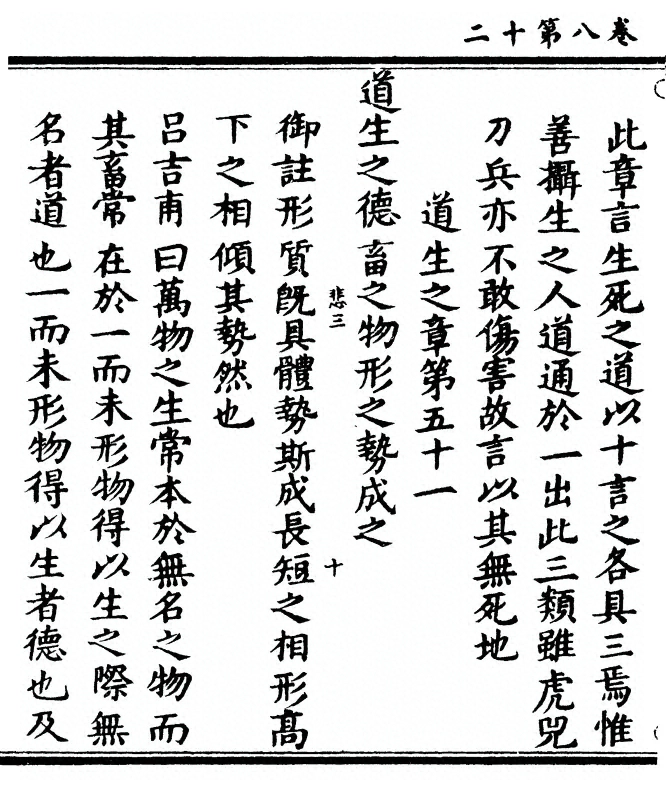 二十第八卷
此章言生死之道以十言之各具三焉惟
善攝生之人道通於一出此三類雖虎兕
刀兵亦不敢傷害故言以其無死地
道生之章第五十一
道生之德畜之物形之勢成之
悲三
十
御註形質旣具體勢斯成長短之相形髙
下之相傾其勢然也
呂吉甫曰萬物之生常本於無名之物而
其畜常在於一而未形物得以生之際無
名者道也一而未形物得以生者德也及